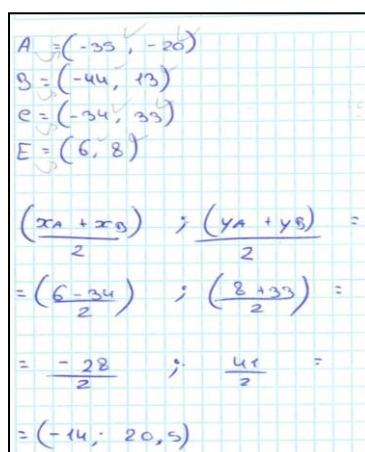 A = (-35, -20)
B = (-44, 13)
C = (-34, 33)
E = (6, 8)
(xA + xB)/2 ; (yA + yB)/2 =
= (6-34)/2 ; (8+33)/2 =
= -28/2 ; 41/2 =
= (-14; 20,5)